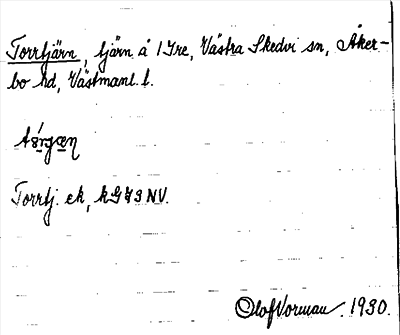 Torrtjärn, tjärn å 1 Tre, Västra Skedvi sn, Åker-
bo hd, Västmanl. l.
Torrtj. ek, k
Olof Vorman. 1930.